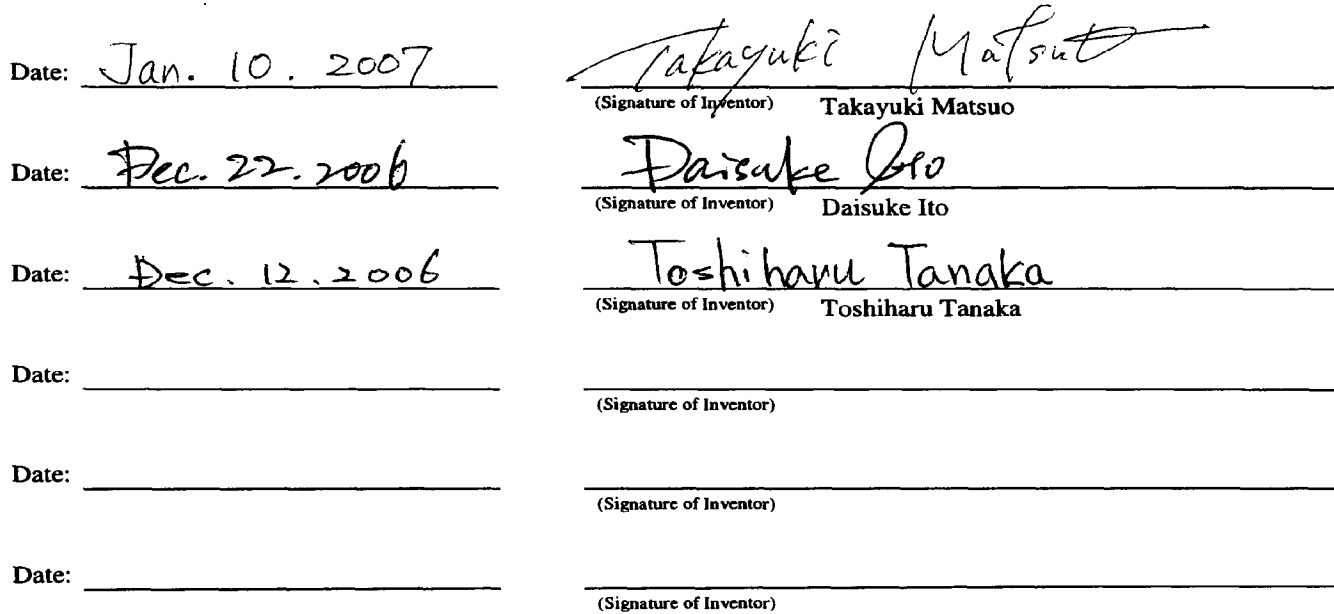 Date: Jan. 10. 2007 Takayuki Matsuo
(Signature of Inventor) Takayuki Matsuo
Date: Dec. 22. 2006 Daisuke Ito
(Signature of Inventor) Daisuke Ito
Date: Dec. 12. 2006 Toshiharu Tanaka
(Signature of Inventor) Toshiharu Tanaka
Date:
(Signature of Inventor)
Date:
(Signature of Inventor)
Date:
(Signature of Inventor)